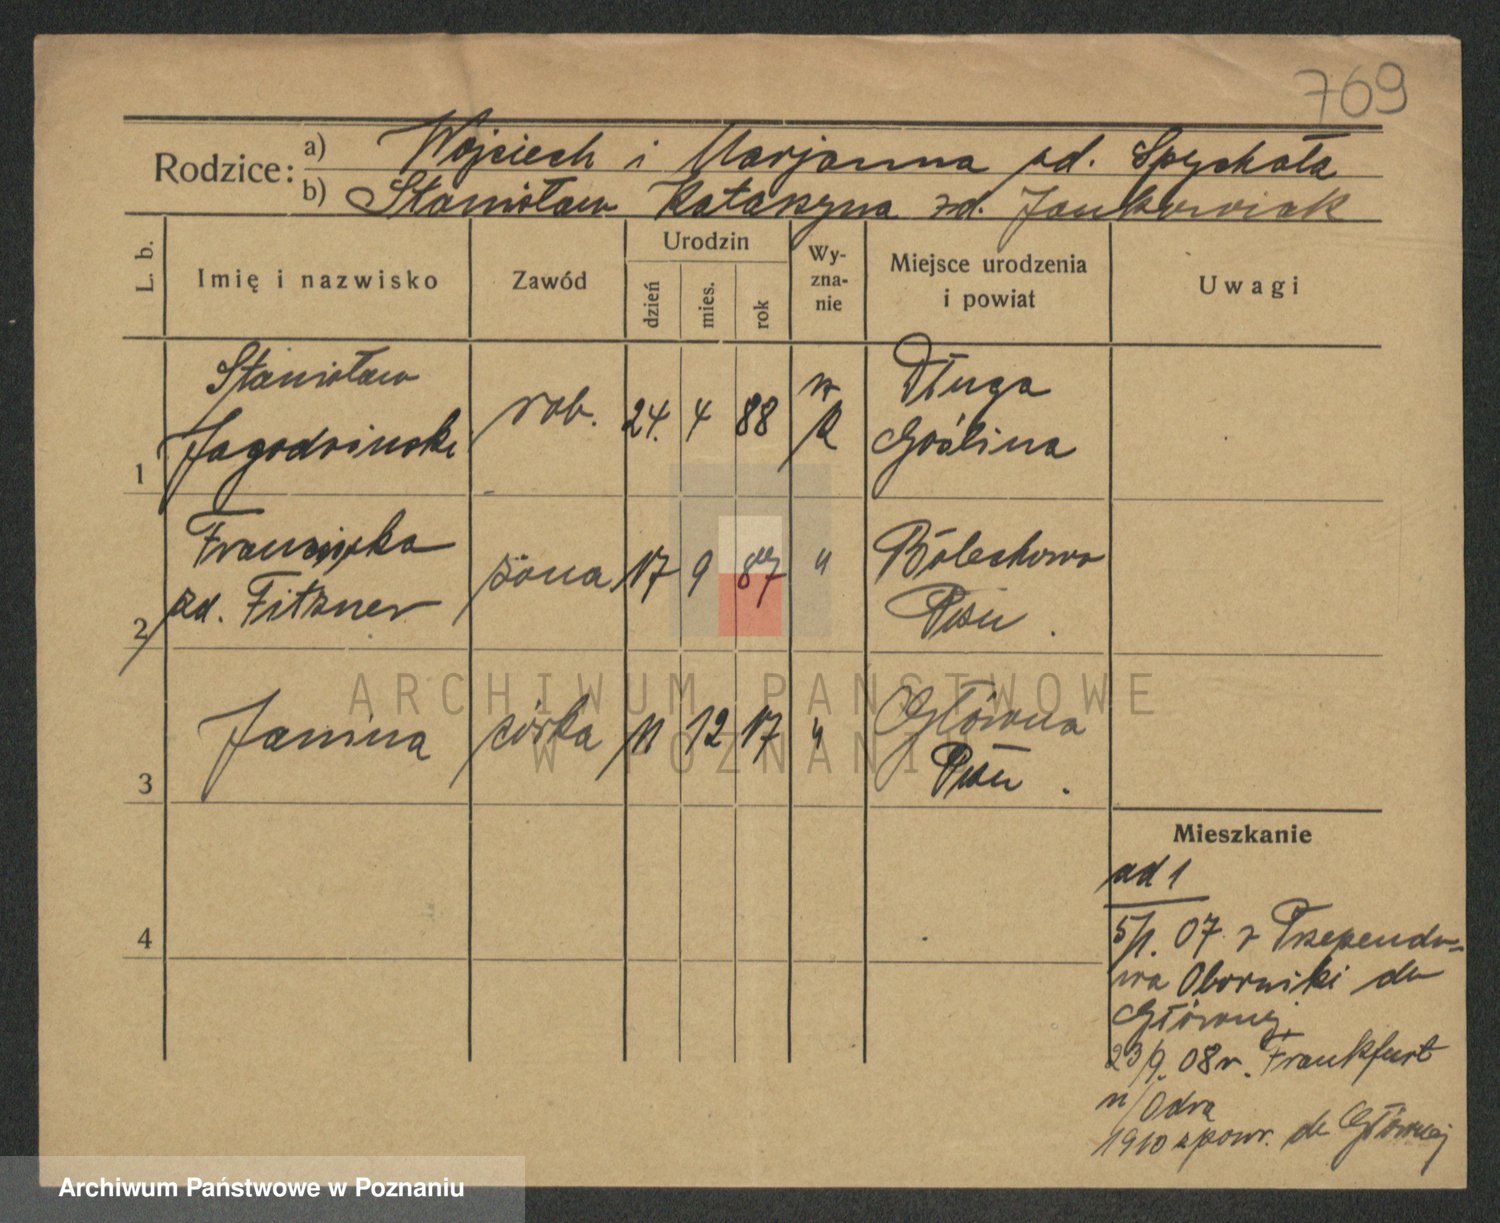 769
Rodzice: a) Wojciech i Marjanna zd. Spychała
b) Stanisław Katarzyna zd. Jankowiak
L. b.
Imię i nazwisko
Zawód
Urodzin
dzień
mies.
rok
Wy-
zna-
nie
Miejsce urodzenia
i powiat
Uwagi
1
Stanisław
Jagodzinski
rob.
24. 4 88
rz
k
Długa
Goślina
2
Franciszka
zd. Fitzner
żona
17 9 87
"
Bolechowo
Pozn.
3
Janina
córka
11 12 17
"
Główna
Pozn.
4
Mieszkanie
ad 1
5/1. 07 z Przependo-
wa Oborniki do
Głównej
23/9. 08 r. Frankfurt
n/Odrą
1910 z powr. do Głównej
ARCHIWUM PAŃSTWOWE
W POZNANIU
Archiwum Państwowe w Poznaniu